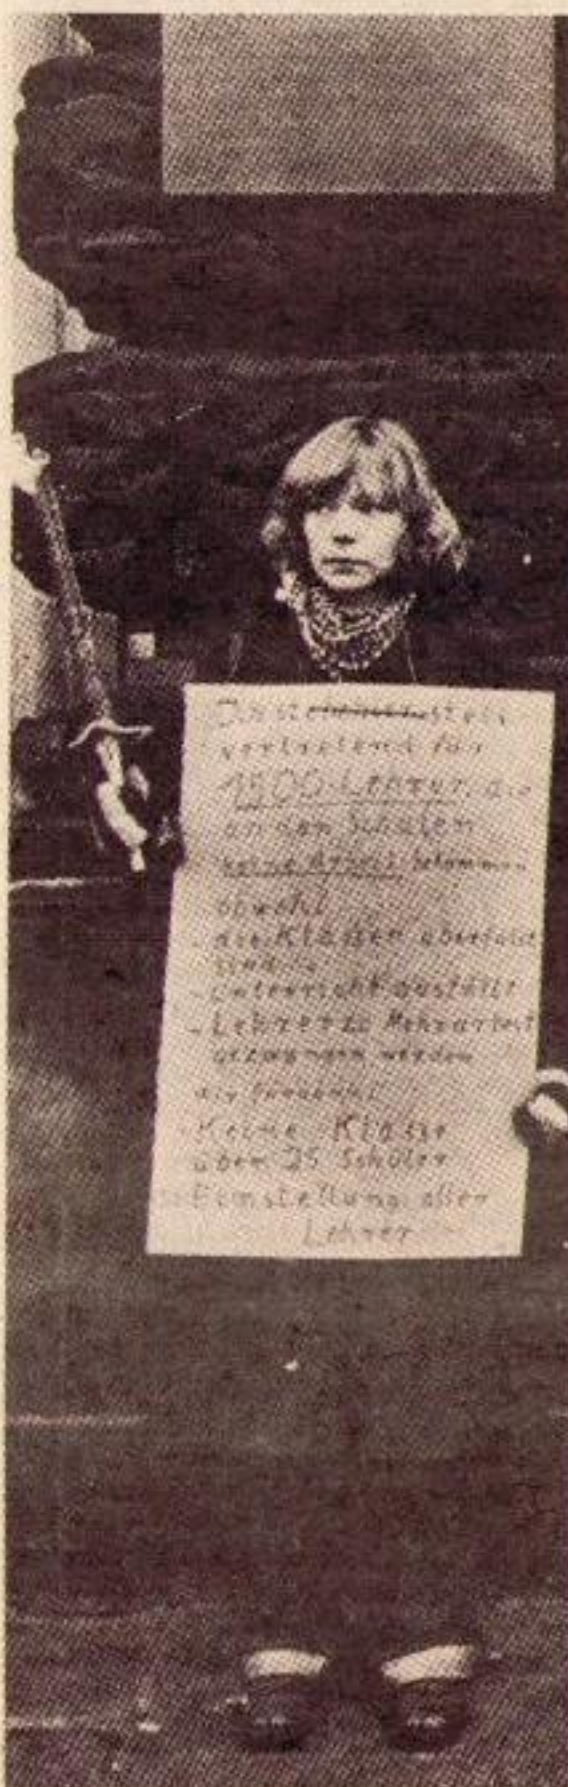 Ich stehe stell-
vertretend für
1900 Lehrer, die
an den Schulen
keine Arbeit bekommen
obwohl
- die Klassen überfüllt
sind
- Unterricht ausfällt
- Lehrer zu Mehrarbeit
gezwungen werden
Wir fordern:
- Keine Klasse
über 25 Schüler
- Einstellung aller
Lehrer